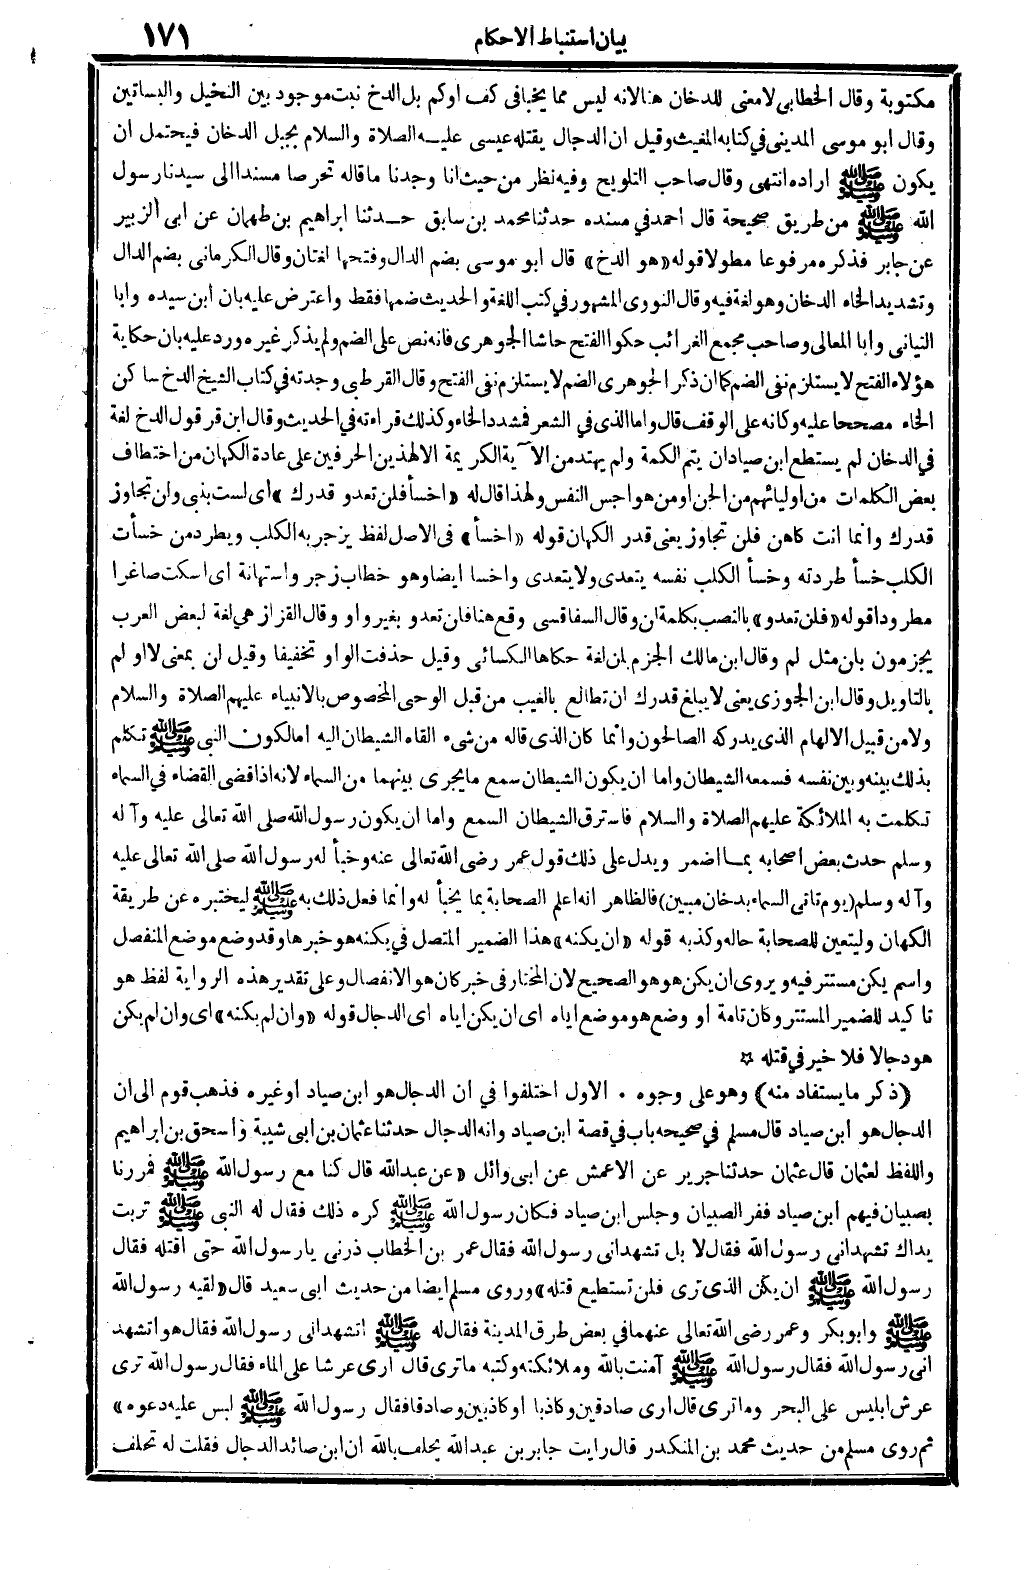 بيان استنباط الاحكام ١٧١
مكتوبة وقال الخطابي لا معنى للدخان هنا لانه ليس مما يخبا في كف او كم بل الدخ نبت موجود بين النخيل والبساتين
وقال ابو موسى المديني في كتابه المغيث وقيل ان الدجال يقتله عيسى عليه الصلاة والسلام بجبل الدخان فيحتمل ان
يكون ﷺ اراده انتهى وقال صاحب التلويح وفيه نظر من حيث انا وجدنا ما قاله تخرصا مسندا الى سيدنا رسول
الله ﷺ من طريق صحيحة قال أحمد في مسنده حدثنا محمد بن سابق حدثنا ابراهيم بن طهمان عن ابى الزبير
عن جابر فذكره مرفوعا مطولا قوله «هو الدخ» قال ابو موسى بضم الدال وفتحها لغتان وقال الكرمانى بضم الدال
وتشديد الخاء الدخان وهو لغة فيه وقال النووى المشهور في كتب اللغة والحديث ضمها فقط واعترض عليه بان ابن سيده وابا
التيانى وابا المعالى وصاحب مجمع الغرائب حكوا الفتح حاشا الجوهرى فانه نص على الضم ولم يذكر غيره ورد عليه بان حكاية
هؤلاء الفتح لا يستلزم نفى الضم كما ان ذكر الجوهرى الضم لا يستلزم نفى الفتح وقال القرطبى وجدته في كتاب الشيخ الدخ ساكن
الخاء مصححا عليه وكانه على الوقف قال واما الذى في الشعر فمشدد الخاء وكذلك قراءته في الحديث وقال ابن قرقول الدخ لغة
في الدخان لم يستطع ابن صياد ان يتم الكلمة ولم يهتد من الآية الكريمة الا لهذين الحرفين على عادة الكهان من اختطاف
بعض الكلمات من اوليائهم من الجن او من هواجس النفس ولهذا قال له «اخسأ فلن تعدو قدرك» اى لست بنبى ولن تجاوز
قدرك وانما انت كاهن فلن تجاوز يعنى قدر الكهان قوله «اخسأ» في الاصل لفظ يزجر به الكلب ويطرد من خسأت
الكلب خسأ طردته وخسأ الكلب نفسه يتعدى ولا يتعدى واخسا ايضا وهو خطاب زجر واستهانة اى اسكت صاغرا
مطرودا قوله «فلن تعدو» بالنصب بكلمة لن وقال السفاقسى وقع هنا فلن تعدو بغير واو وقال القزاز هي لغة لبعض العرب
يجزمون بلن مثل لم وقال ابن مالك الجزم بلن لغة حكاها الكسائى وقيل حذفت الواو تخفيفا وقيل لن بمعنى لا او لم
بالتاويل وقال ابن الجوزى يعنى لا يبلغ قدرك ان تطالع بالغيب من قبل الوحى المخصوص بالانبياء عليهم الصلاة والسلام
ولا من قبيل الالهام الذى يدركه الصالحون وانما كان الذى قاله من شىء القاه الشيطان اليه اما لكون النبى ﷺ تكلم
بذلك بينه وبين نفسه فسمعه الشيطان واما ان يكون الشيطان سمع ما يجرى بينهما من السماء لانه اذا قضى القضاء في السماء
تكلمت به الملائكة عليهم الصلاة والسلام فاسترق الشيطان السمع واما ان يكون رسول الله صلى الله تعالى عليه وآله
وسلم حدث بعض اصحابه بما اضمر ويدل على ذلك قول عمر رضى الله تعالى عنه وخبأ له رسول الله صلى الله تعالى عليه
وآله وسلم (يوم تاتى السماء بدخان مبين) فالظاهر انه اعلم الصحابة بما يخبأ له وانما فعل ذلك به ﷺ ليختبره عن طريقة
الكهان وليتعين للصحابة حاله وكذبه قوله «ان يكنه» هذا الضمير المتصل في يكنه هو خبرها وقد وضع موضع المنفصل
واسم يكن مستتر فيه ويروى ان يكن هو هو الصحيح لان المختار في خبر كان هو الانفصال وعلى تقدير هذه الرواية لفظ هو
تاكيد للضمير المستتر وكان تامة او وضع هو موضع اياه اى ان يكن اياه اى الدجال قوله «وان لم يكنه» اى وان لم يكن
هو دجالا فلا خير في قتله ☆
(ذكر ما يستفاد منه) وهو على وجوه . الاول اختلفوا في ان الدجال هو ابن صياد او غيره فذهب قوم الى ان
الدجال هو ابن صياد قال مسلم في صحيحه باب في قصة ابن صياد وانه الدجال حدثنا عثمان بن ابى شيبة واسحق بن ابراهيم
واللفظ لعثمان قال عثمان حدثنا جرير عن الاعمش عن ابى وائل «عن عبد الله قال كنا مع رسول الله ﷺ فمررنا
بصبيان فيهم ابن صياد ففر الصبيان وجلس ابن صياد فكان رسول الله ﷺ كره ذلك فقال له النبى ﷺ تربت
يداك تشهد انى رسول الله فقال لا بل تشهد انى رسول الله فقال عمر بن الخطاب ذرنى يا رسول الله حتى اقتله فقال
رسول الله ﷺ ان يكن الذى ترى فلن تستطيع قتله» وروى مسلم ايضا من حديث ابى سعيد قال «لقيه رسول الله
ﷺ وابو بكر وعمر رضى الله تعالى عنهما في بعض طرق المدينة فقال له ﷺ اتشهد انى رسول الله فقال هو اتشهد
انى رسول الله فقال رسول الله ﷺ آمنت بالله وملائكته وكتبه ما ترى قال ارى عرشا على الماء فقال رسول الله ترى
عرش ابليس على البحر وما ترى قال ارى صادقين وكاذبا او كاذبين وصادقا فقال رسول الله ﷺ لبس عليه دعوه»
ثم روى مسلم من حديث محمد بن المنكدر قال رايت جابر بن عبد الله يحلف بالله ان ابن صائد الدجال فقلت له تحلف